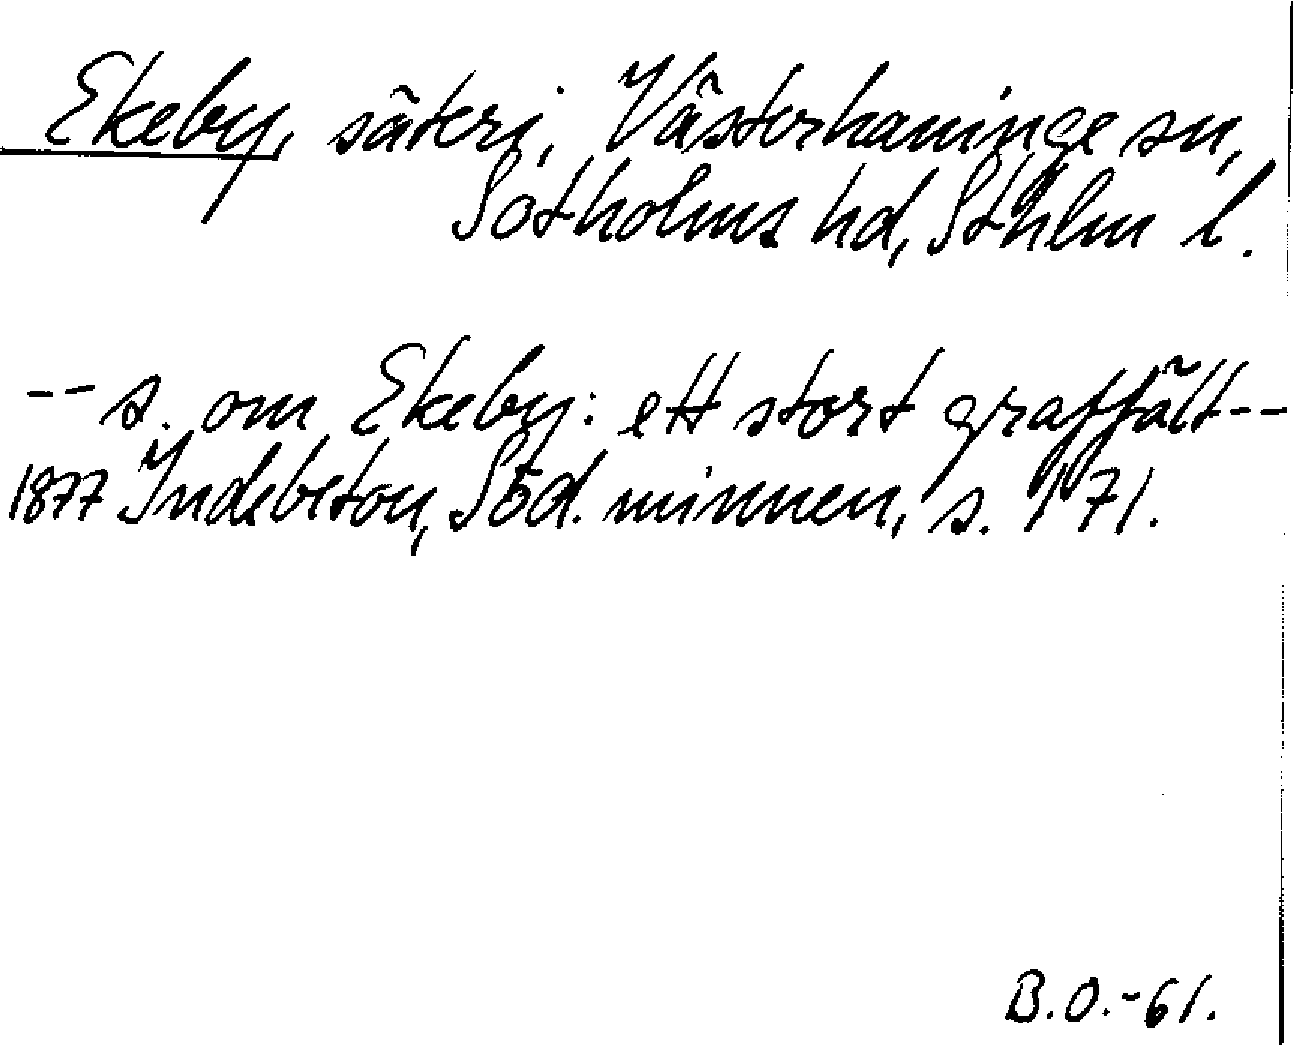 Ekeby, säteri, Västerhaninge sn,
Sotholms hd, Sthlm l.
-- s. om Ekeby: ett stort graffält--
1877 Indebetou, Söd. minnen, s. 171.
B.O.-61.